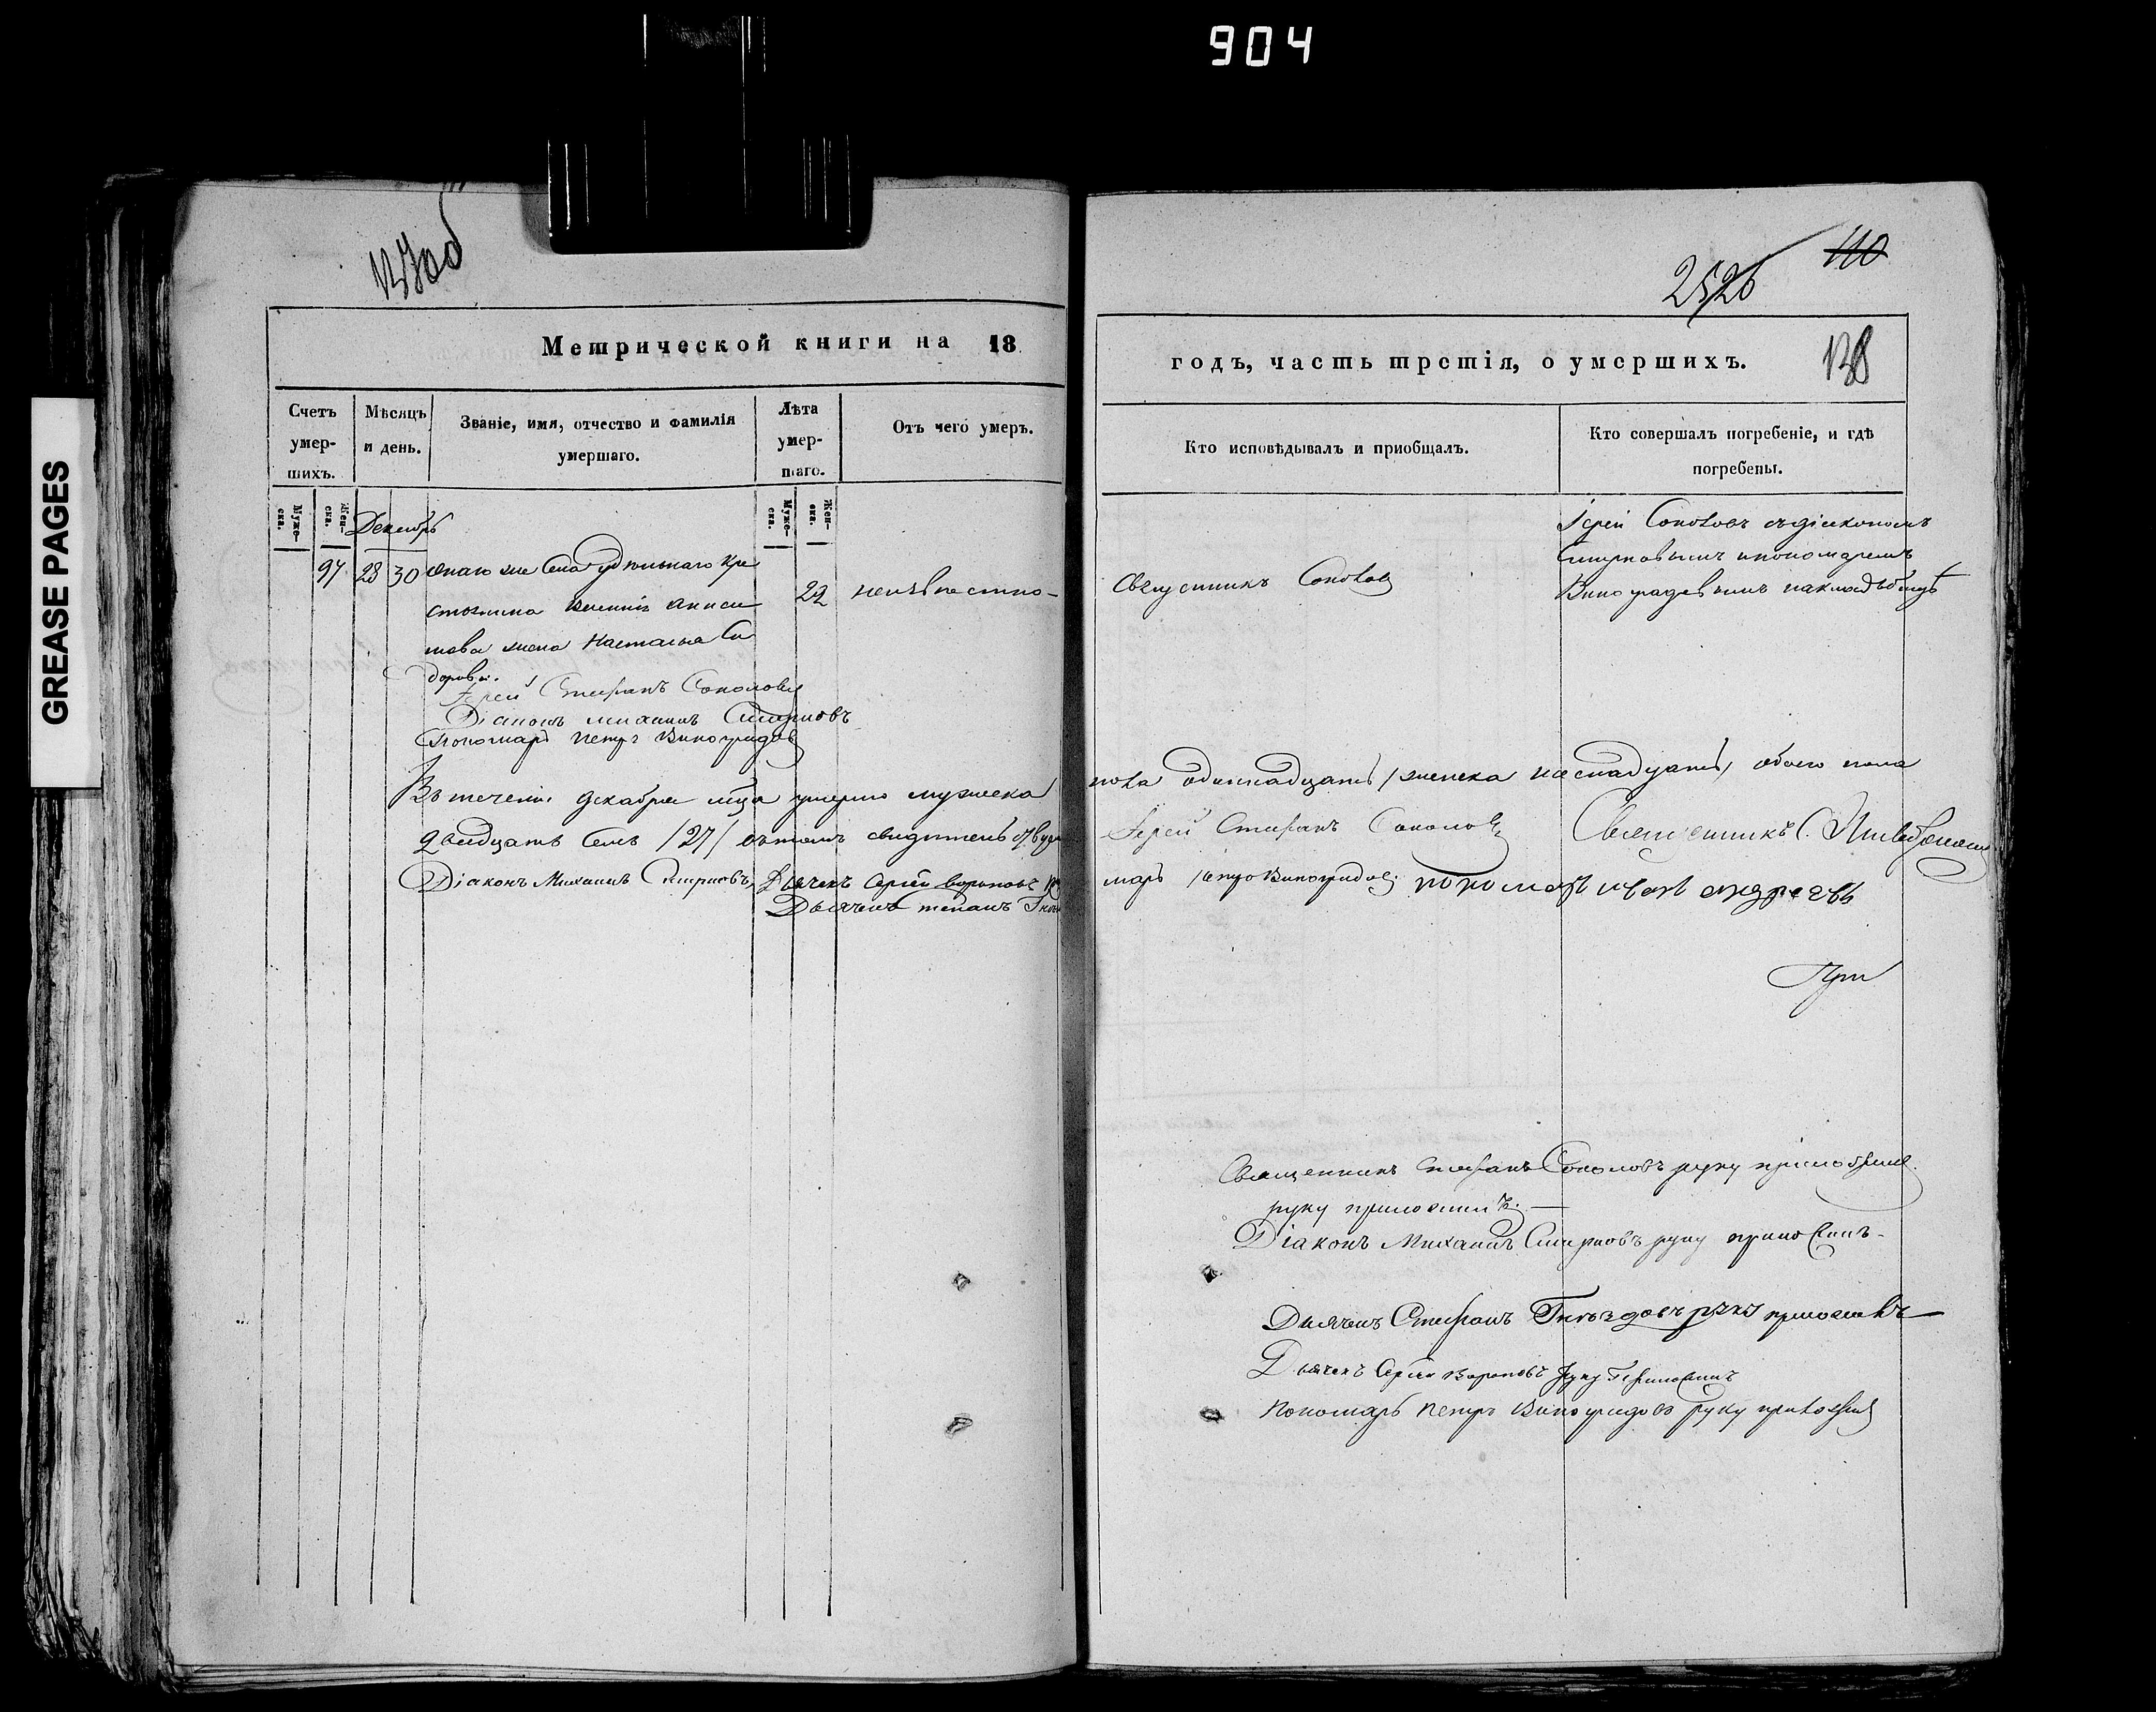 904
GREASE PAGES
137об
2526
110
138
Метрической книги на 18
годъ, часть третія, о умершихъ.
Счетъ умер-шихъ.
Мѣсяцъ и день.
Званіе, имя, отчество и фамилія умершаго.
Лѣта умер-шаго.
Отъ чего умеръ.
Кто исповѣдывалъ и приобщалъ.
Кто совершалъ погребеніе, и гдѣ погребены.
Муже-ска.
Жен-ска.
Муже-ска.
Жен-ска.
Декабрь
97 28 30 онаго же Села удѣльнаго Кре
стьянина Аниси
мова жена Настасья Си
дорова.
22
неизвѣстно
Священникъ Соколовъ
Іерей Соколовъ съ діакономъ
Смирновымъ и пономаремъ
Виноградовымъ на кладбищѣ
Іерей Стефанъ Соколовъ
Діаконъ Михаилъ Смирновъ
Пономарь Петръ Виноградовъ
Въ теченіи декабря мѣсяца умерло мужеска
пола одиннадцать, женска шеснадцать, обоего пола
двадцать семь /27/ въ томъ
Іерей Стефанъ Соколовъ Священникъ С.
Діаконъ Михаилъ Смирновъ, Дьячекъ Сергій Вороновъ
марь Петръ Виноградовъ пономарь Иванъ Андреевъ
Дьячекъ Степанъ
Священникъ Стефанъ Соколовъ руку приложилъ.
руку приложилъ.
Діаконъ Михаилъ Смирновъ руку приложилъ
Дьячекъ Стефанъ Гнѣздовъ руку приложилъ
Дьячекъ Сергій Вороновъ руку приложилъ
Пономарь Петръ Виноградовъ руку приложилъ